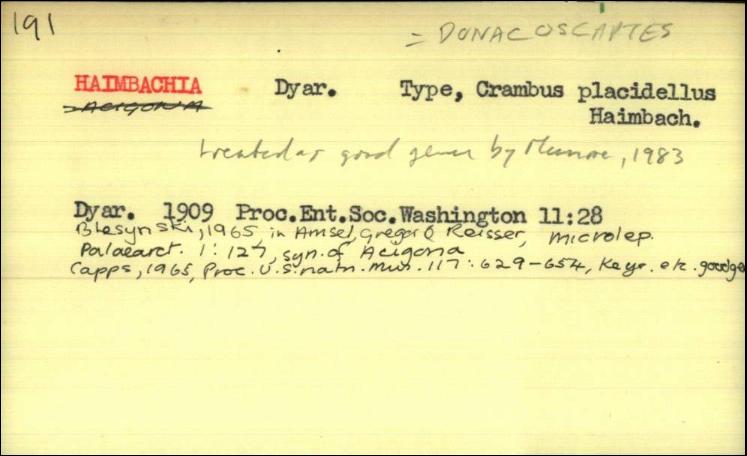 191
= DONACOSCAPTES
HAIMBACHIA Dyar. Type, Crambus placidellus
= ACIGONA Haimbach.
treated as good genus by Munroe, 1983
Dyar. 1909 Proc.Ent.Soc.Washington 11:28
Blesynski, 1965 in Amsel, Gregor & Reisser, Microlep.
Palaearct. 1:127, syn. of Acigona
Capps, 1965, Proc. U.S. natn. Mus. 117:629-654, Keys. etc. good ge